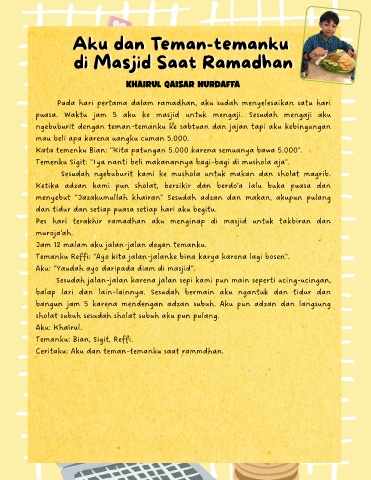 Aku dan Teman-temanku
di Masjid Saat Ramadhan
KHAIRUL QAISAR NURDAFFA
Pada hari pertama dalam ramadhan, aku sudah menyelesaikan satu hari
puasa. Waktu jam 5 aku ke masjid untuk mengaji. Sesudah mengaji aku
ngebuburit dengan teman-temanku ke sabtuan dan jajan tapi aku kebingungan
mau beli apa karena uangku cuman 5.000.
Kata temenku Bian: "Kita patungan 5.000 karena semuanya bawa 5.000".
Temenku Sigit: "Iya nanti beli makanannya bagi-bagi di mushola aja".
Sesudah ngebuburit kami ke mushola untuk makan dan sholat magrib.
Ketika adzan kami pun sholat, berzikir dan berdo'a lalu buka puasa dan
menyebut "Jazakumullah khairan" Sesudah adzan dan makan, akupun pulang
dan tidur dan setiap puasa setiap hari aku begitu.
Pes hari terakhir ramadhan aku menginap di masjid untuk takbiran dan
muroja'ah.
Jam 12 malam aku jalan-jalan degan temanku.
Temanku Reffi: "Ayo kita jalan-jalanke bina karya karena lagi bosen".
Aku: "Yaudah ayo daripada diam di masjid".
Sesudah jalan-jalan karena jalan sepi kami pun main seperti ucing-ucingan,
balap lari dan lain-lainnya. Sesudah bermain aku ngantuk dan tidur dan
bangun jam 5 karena mendengan adzan subuh. Aku pun adzan dan langsung
sholat subuh sesudah sholat subuh aku pun pulang.
Aku: Khairul.
Temanku: Bian, Sigit, Reffi.
Ceritaku: Aku dan teman-temanku saat rammdhan.